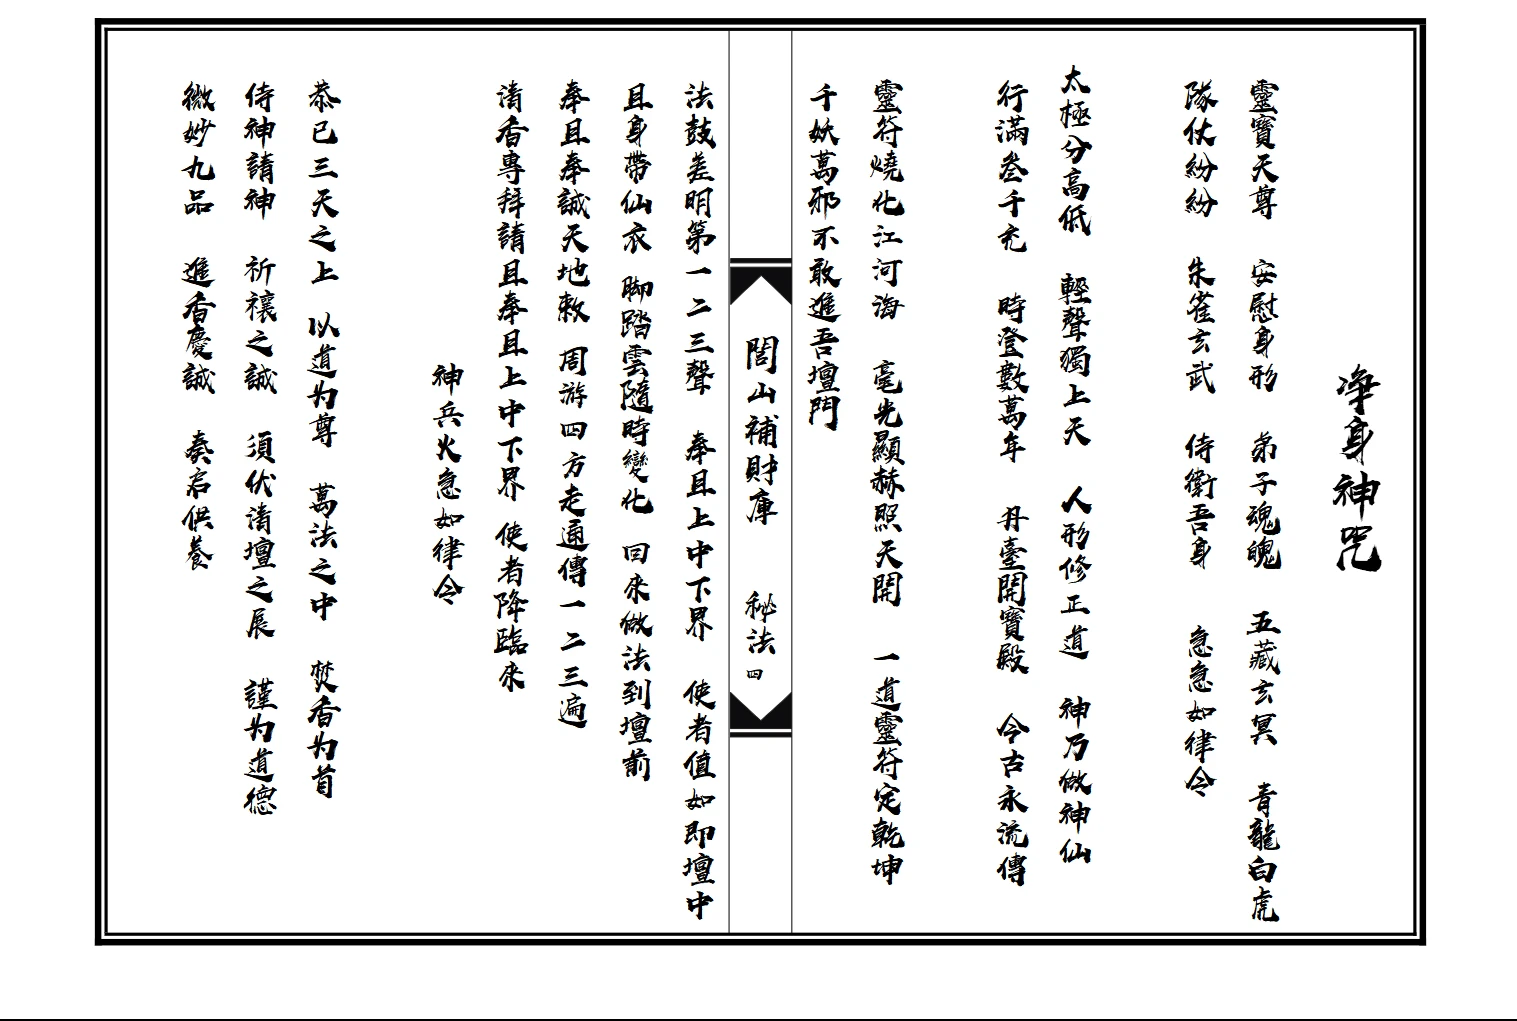 净身神咒
靈寶天尊 安慰身形 弟子魂魄 五藏玄冥 青龍白虎
隊仗紛紛 朱雀玄武 侍衛吾身 急急如律令
太極分高低 輕聲獨上天 人形修正道 神乃做神仙
行滿叁千充 時登數萬年 丹臺開寶殿 今古永流傳
靈符燒化江河海 毫光顯赫照天開 一道靈符定乾坤
千妖萬邪不敢進吾壇門
閭山補財庫 秘法 四
法鼓差明第一二三聲 奉且上中下界 使者值如即壇中
且身帶仙衣 脚踏雲隨時變化 回來做法到壇前
奉且奉誠天地敕 周游四方走通傳一二三遍
清香專拜請且奉且上中下界 使者降臨來
神兵火急如律令
恭已三天之上 以道为尊 萬法之中 焚香为首
侍神請神 祈禳之誠 須伏清壇之展 謹为道德
微妙九品 進香慶誠 奏启供養